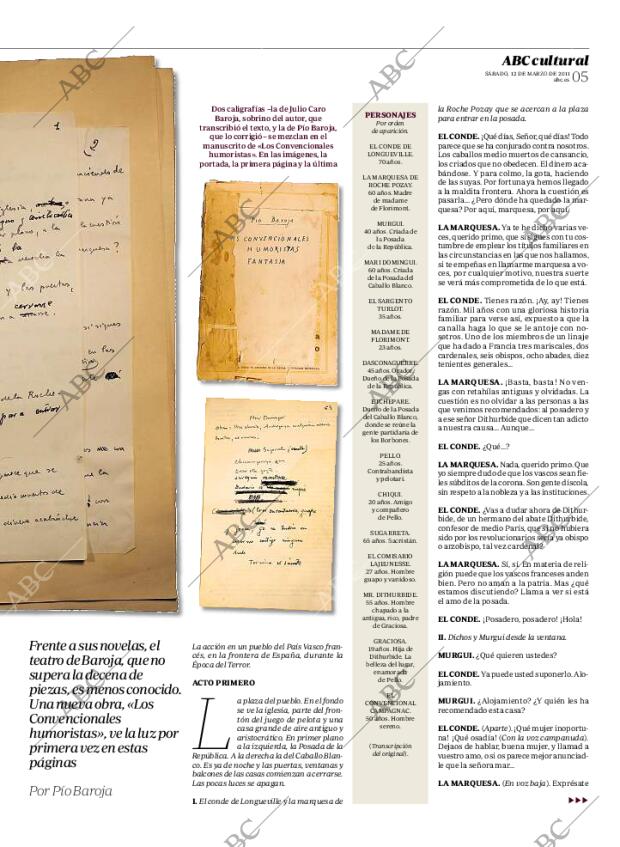 ABC cultural
SÁBADO, 12 DE MARZO DE 2011
abc.es 05
Dos caligrafías –la de Julio Caro
Baroja, sobrino del autor, que
transcribió el texto, y la de Pío Baroja,
que lo corrigió– se mezclan en el
manuscrito de «Los Convencionales
humoristas». En las imágenes, la
portada, la primera página y la última
Pío Baroja
CONVENCIONALES
HUMORISTAS
FANTASIA
Frente a sus novelas, el
teatro de Baroja, que no
supera la decena de
piezas, es menos conocido.
Una nueva obra, «Los
Convencionales
humoristas», ve la luz por
primera vez en estas
páginas
Por Pío Baroja
La acción en un pueblo del País Vasco fran-
cés, en la frontera de España, durante la
Época del Terror.
ACTO PRIMERO
La plaza del pueblo. En el fondo
se ve la iglesia, parte del fron-
tón del juego de pelota y una
casa grande de aire antiguo y
aristocrático. En primer plano
a la izquierda, la Posada de la
República. A la derecha la del Caballo Blan-
co. Es ya de noche y las puertas, ventanas y
balcones de las casas comienzan a cerrarse.
Las pocas luces se apagan.
I. El conde de Longueville y la marquesa de
PERSONAJES
Por orden
de aparición.
EL CONDE DE
LONGUEVILLE.
70 años.
LA MARQUESA DE
ROCHE POZAY.
60 años. Madre
de madame
de Florimont.
MURGUI.
40 años. Criada de
la Posada
de la República.
MARI DOMINGUI.
60 años. Criada
de la Posada del
Caballo Blanco.
EL SARGENTO
TURLOT.
35 años.
MADAME DE
FLORIMONT.
23 años.
DASCONAGUERRE.
45 años. Orador.
Dueño de la Posada
de la República.
EICHEPARE.
Dueño de la Posada
del Caballo Blanco,
donde se reúne la
gente partidaria de
los Borbones.
PELLO.
25 años.
Contrabandista
y pelotari.
CHIQUI.
20 años. Amigo
y compañero
de Pello.
SUGARRETA.
65 años. Sacristán.
EL COMISARIO
LAJEUNESSE.
27 años. Hombre
guapo y vanidoso.
MR. DITHURBIDE.
55 años. Hombre
chapado a la
antigua, rico, padre
de Graciosa.
GRACIOSA.
19 años. Hija de
Dithurbide. La
belleza del lugar,
enamorada
de Pello.
EL
CONVENCIONAL
CAMPAGNAC.
50 años. Hombre
sereno.
(Transcripción
del original).
la Roche Pozay que se acercan a la plaza
para entrar en la posada.
EL CONDE. ¡Qué días, Señor, qué días! Todo
parece que se ha conjurado contra nosotros.
Los caballos medio muertos de cansancio,
los criados que no obedecen. El dinero aca-
bándose. Y para colmo, la gota, haciendo
de las suyas. Por fortuna ya hemos llegado
a la maldita frontera. Ahora la cuestión es
pasarla... ¿Pero dónde ha quedado la mar-
quesa? Por aquí, marquesa, por aquí.
LA MARQUESA. Ya te he dicho varias ve-
ces, querido primo, que si sigues con tu cos-
tumbre de emplear los títulos familiares en
las circunstancias en las que nos hallamos,
si te empeñas en llamarme marquesa a vo-
ces, por cualquier motivo, nuestra suerte
se verá más comprometida de lo que está.
EL CONDE. Tienes razón. ¡Ay, ay! Tienes
razón. Mil años con una gloriosa historia
familiar para verse así, expuesto a que la
canalla haga lo que se le antoje con no-
sotros. Uno de los miembros de un linaje
que ha dado a Francia tres mariscales, dos
cardenales, seis obispos, ocho abades, diez
tenientes generales...
LA MARQUESA. ¡Basta, basta! No ven-
gas con retahílas antiguas y olvidadas. La
cuestión es no olvidar a las personas a las
que venimos recomendados: al posadero y
a ese señor Dithurbide que dicen tan adicto
a nuestra causa... Aunque...
EL CONDE. ¿Qué...?
LA MARQUESA. Nada, querido primo. Que
yo siempre dudo de que los vascos sean fie-
les súbditos de la corona. Son gente díscola,
sin respeto a la nobleza y a las instituciones.
EL CONDE. ¿Vas a dudar ahora de Dithur-
bide, de un hermano del abate Dithurbide,
confesor de medio París, que si no hubiera
sido por los revolucionarios sería ya obispo
o arzobispo, tal vez cardenal?
LA MARQUESA. Sí, sí. En materia de reli-
gión puede que los vascos franceses anden
bien. Pero no aman a la patria. Mas ¿qué
estamos discutiendo? Llama a ver si está
el amo de la posada.
EL CONDE. ¡Posadero, posadero! ¡Hola!
II. Dichos y Murgui desde la ventana.
MURGUI. ¿Qué quieren ustedes?
EL CONDE. Ya puede usted suponerlo. Alo-
jamiento.
MURGUI. ¿Alojamiento? ¿Y quién les ha
recomendado esta casa?
EL CONDE. (Aparte). ¡Qué mujer inoportu-
na! ¡Qué osadía! (Con la voz campanuda).
Dejaos de hablar, buena mujer, y llamad a
vuestro amo, a osi os parece mejor anunciad-
le que la señora mar...
LA MARQUESA. (En voz baja). Exprésate